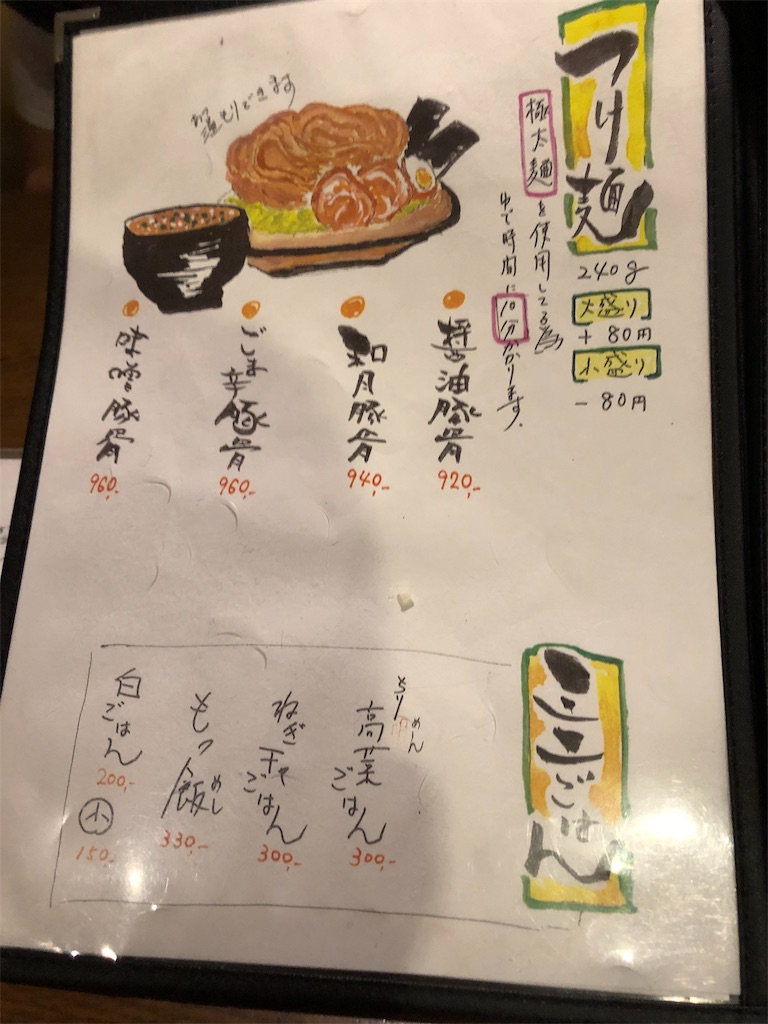 つけ麺
240g
大盛り
+80円
小盛り
-80円
極太麺を使用してる為
ゆで時間に10分かかります。
醤油豚骨
920,-
和月豚骨
940,-
ごま辛豚骨
960,-
味噌豚骨
960,-
ミニごはん
ちりめん
高菜ごはん
300,-
ねぎチャごはん
300,-
もつ飯
めし
330,-
白ごはん
200,-
小
150,-